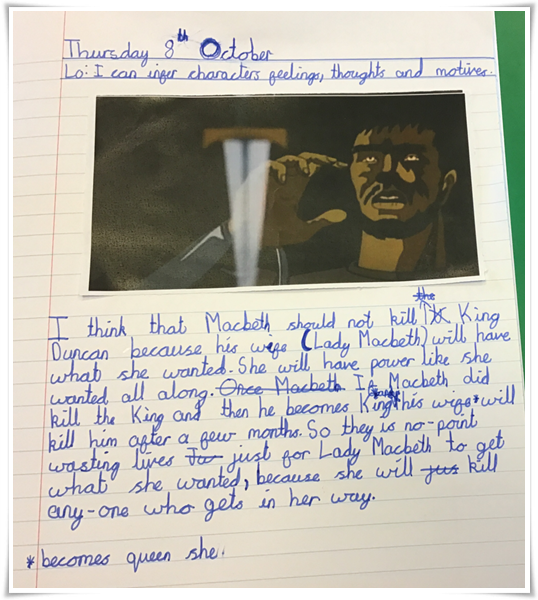 Thursday 8th October
Lo: I can infer characters feelings, thoughts and motives.
the
I think that Macbeth should not kill King
Duncan because his wife (Lady Macbeth) will have
what she wanted. She will have power like she
wanted all along. Once Macbeth If Macbeth did
kill the King and then he becomes King and his wife * will
kill him after a few months. So they is no-point
wasting lives just for Lady Macbeth to get
what she wanted, because she will jus kill
any-one who gets in her way.
* becomes queen she.